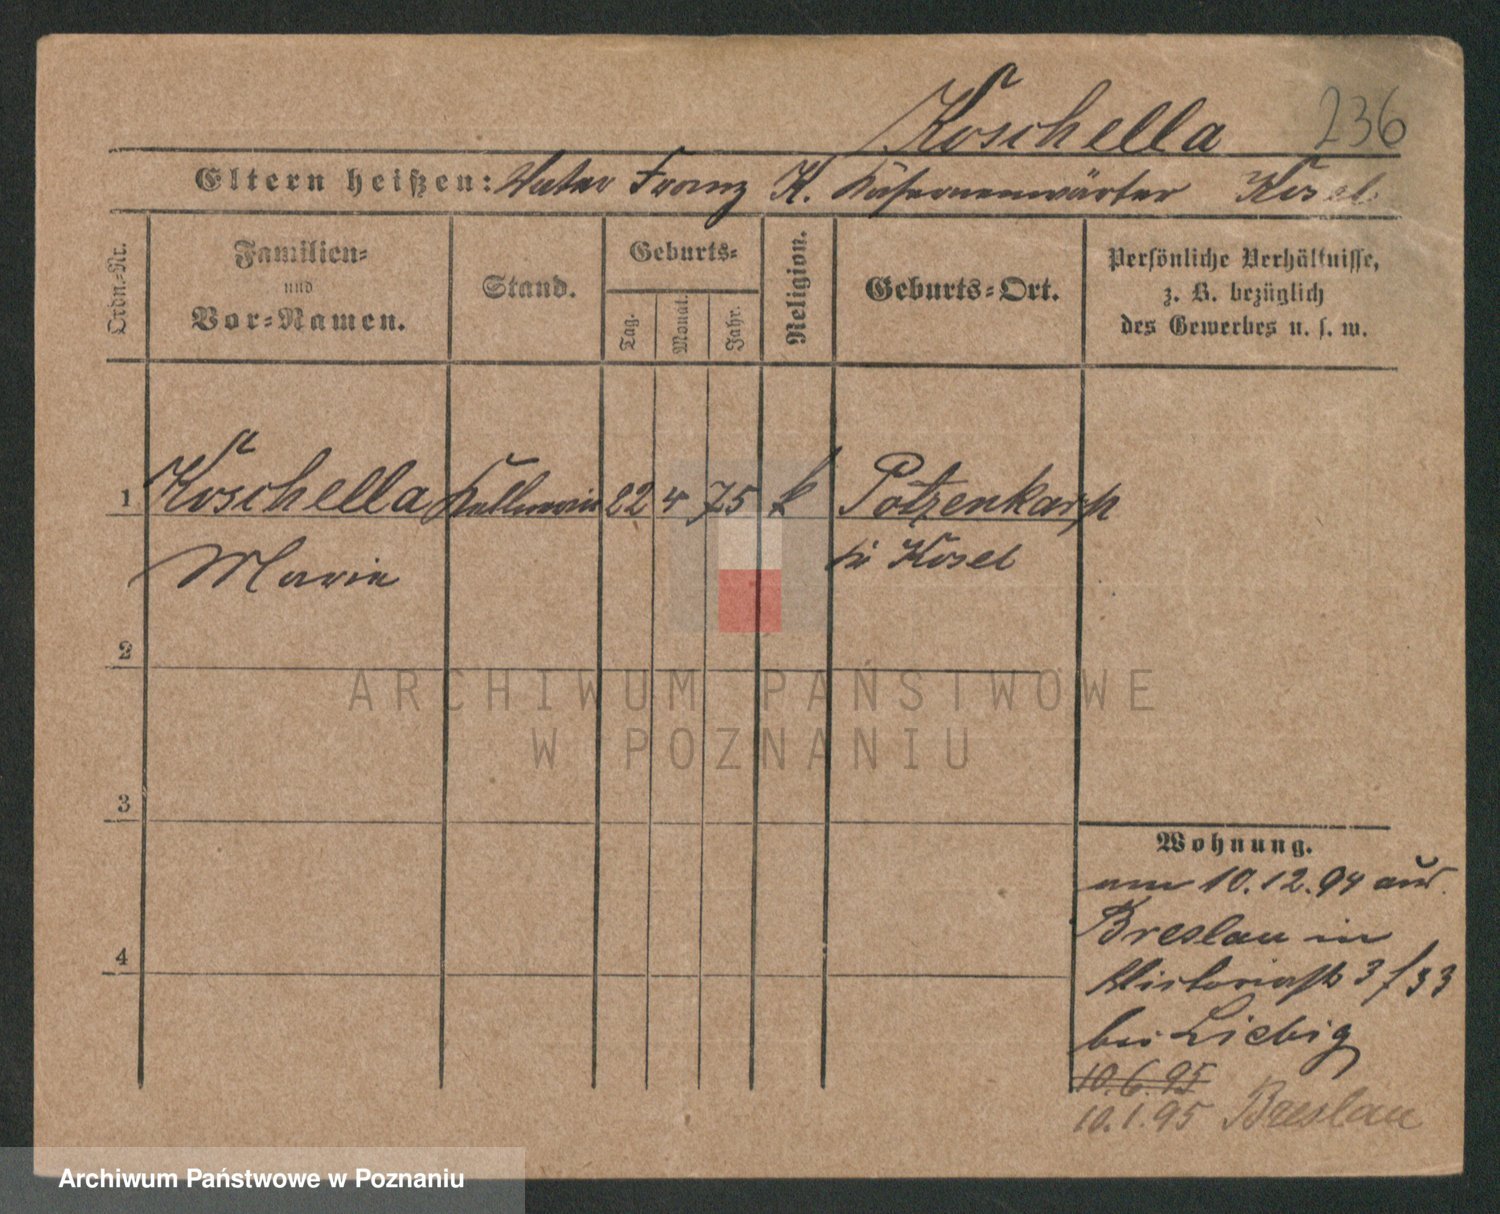 Koschella 236
Eltern heißen: Vater Franz K. Kasernenwärter Kosel
Ordn.-Nr.
Familien-
und
Vor-Namen.
Stand.
Geburts-
Tag.
Monat.
Jahr.
Religion.
Geburts-Ort.
Persönliche Verhältnisse,
z. B. bezüglich
des Gewerbes u. s. w.
1 Koschella Kellnerin 22 4 75 k Potzenkarp
Marie Kr Kosel
2
ARCHIWUM PAŃSTWOWE
W POZNANIU
3
4
Wohnung.
am 10.12.94 aus
Breslau in
Victoriastr 33
bei Liebig
10.6.95
10.1.95 Breslau
Archiwum Państwowe w Poznaniu